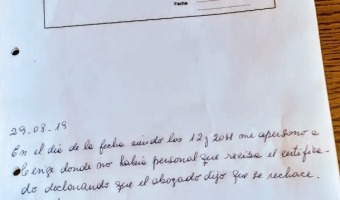 Fecha
29-08-19
En el dia de la fecha siendo las 12 y 20H me apersono a
donde no habia personal que reciba el certifica-
do declarando que el abogado dijo que se rechace.